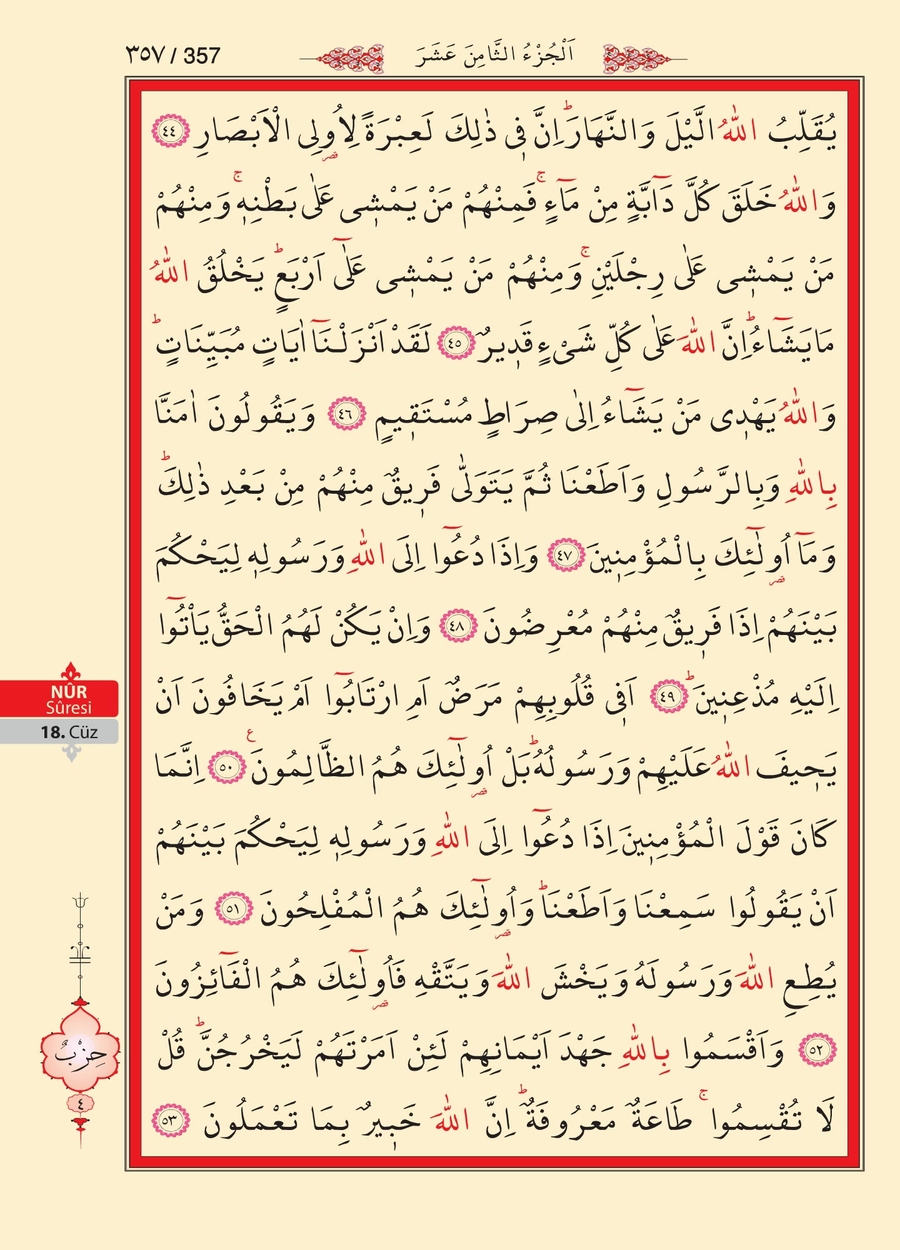 ٣٥٧ / 357
اَلْجُزْءُ الثَّامِنَ عَشَرَ
يُقَلِّبُ اللّٰهُ الَّيْلَ وَالنَّهَارَۜ اِنَّ ف۪ي ذٰلِكَ لَعِبْرَةً لِاُو۬لِي الْاَبْصَارِ ﴿٤٤﴾
وَاللّٰهُ خَلَقَ كُلَّ دَٓابَّةٍ مِنْ مَٓاءٍۚ فَمِنْهُمْ مَنْ يَمْش۪ي عَلٰى بَطْنِه۪ۚ وَمِنْهُمْ
مَنْ يَمْش۪ي عَلٰى رِجْلَيْنِۚ وَمِنْهُمْ مَنْ يَمْش۪ي عَلٰٓى اَرْبَعٍۜ يَخْلُقُ اللّٰهُ
مَا يَشَٓاءُۜ اِنَّ اللّٰهَ عَلٰى كُلِّ شَيْءٍ قَد۪يرٌ ﴿٤٥﴾ لَقَدْ اَنْزَلْنَٓا اٰيَاتٍ مُبَيِّنَاتٍۜ
وَاللّٰهُ يَهْد۪ي مَنْ يَشَٓاءُ اِلٰى صِرَاطٍ مُسْتَق۪يمٍ ﴿٤٦﴾ وَيَقُولُونَ اٰمَنَّا
بِاللّٰهِ وَبِالرَّسُولِ وَاَطَعْنَا ثُمَّ يَتَوَلّٰى فَر۪يقٌ مِنْهُمْ مِنْ بَعْدِ ذٰلِكَۜ
وَمَٓا اُو۬لٰٓئِكَ بِالْمُؤْمِن۪ينَ ﴿٤٧﴾ وَاِذَا دُعُٓوا اِلَى اللّٰهِ وَرَسُولِه۪ لِيَحْكُمَ
بَيْنَهُمْ اِذَا فَر۪يقٌ مِنْهُمْ مُعْرِضُونَ ﴿٤٨﴾ وَاِنْ يَكُنْ لَهُمُ الْحَقُّ يَأْتُٓوا
اِلَيْهِ مُذْعِن۪ينَۜ ﴿٤٩﴾ اَف۪ي قُلُوبِهِمْ مَرَضٌ اَمِ ارْتَابُٓوا اَمْ يَخَافُونَ اَنْ
يَح۪يفَ اللّٰهُ عَلَيْهِمْ وَرَسُولُهُۜ بَلْ اُو۬لٰٓئِكَ هُمُ الظَّالِمُونَ۟ ﴿٥٠﴾ اِنَّمَا
كَانَ قَوْلَ الْمُؤْمِن۪ينَ اِذَا دُعُٓوا اِلَى اللّٰهِ وَرَسُولِه۪ لِيَحْكُمَ بَيْنَهُمْ
اَنْ يَقُولُوا سَمِعْنَا وَاَطَعْنَاۜ وَاُو۬لٰٓئِكَ هُمُ الْمُفْلِحُونَ ﴿٥١﴾ وَمَنْ
يُطِعِ اللّٰهَ وَرَسُولَهُ وَيَخْشَ اللّٰهَ وَيَتَّقْهِ فَاُو۬لٰٓئِكَ هُمُ الْفَٓائِزُونَ
﴿٥٢﴾ وَاَقْسَمُوا بِاللّٰهِ جَهْدَ اَيْمَانِهِمْ لَئِنْ اَمَرْتَهُمْ لَيَخْرُجُنَّۜ قُلْ
لَا تُقْسِمُواۚ طَاعَةٌ مَعْرُوفَةٌۜ اِنَّ اللّٰهَ خَب۪يرٌ بِمَا تَعْمَلُونَ ﴿٥٣﴾
NÛR
Sûresi
18. Cüz
حِزْبٌ
٤